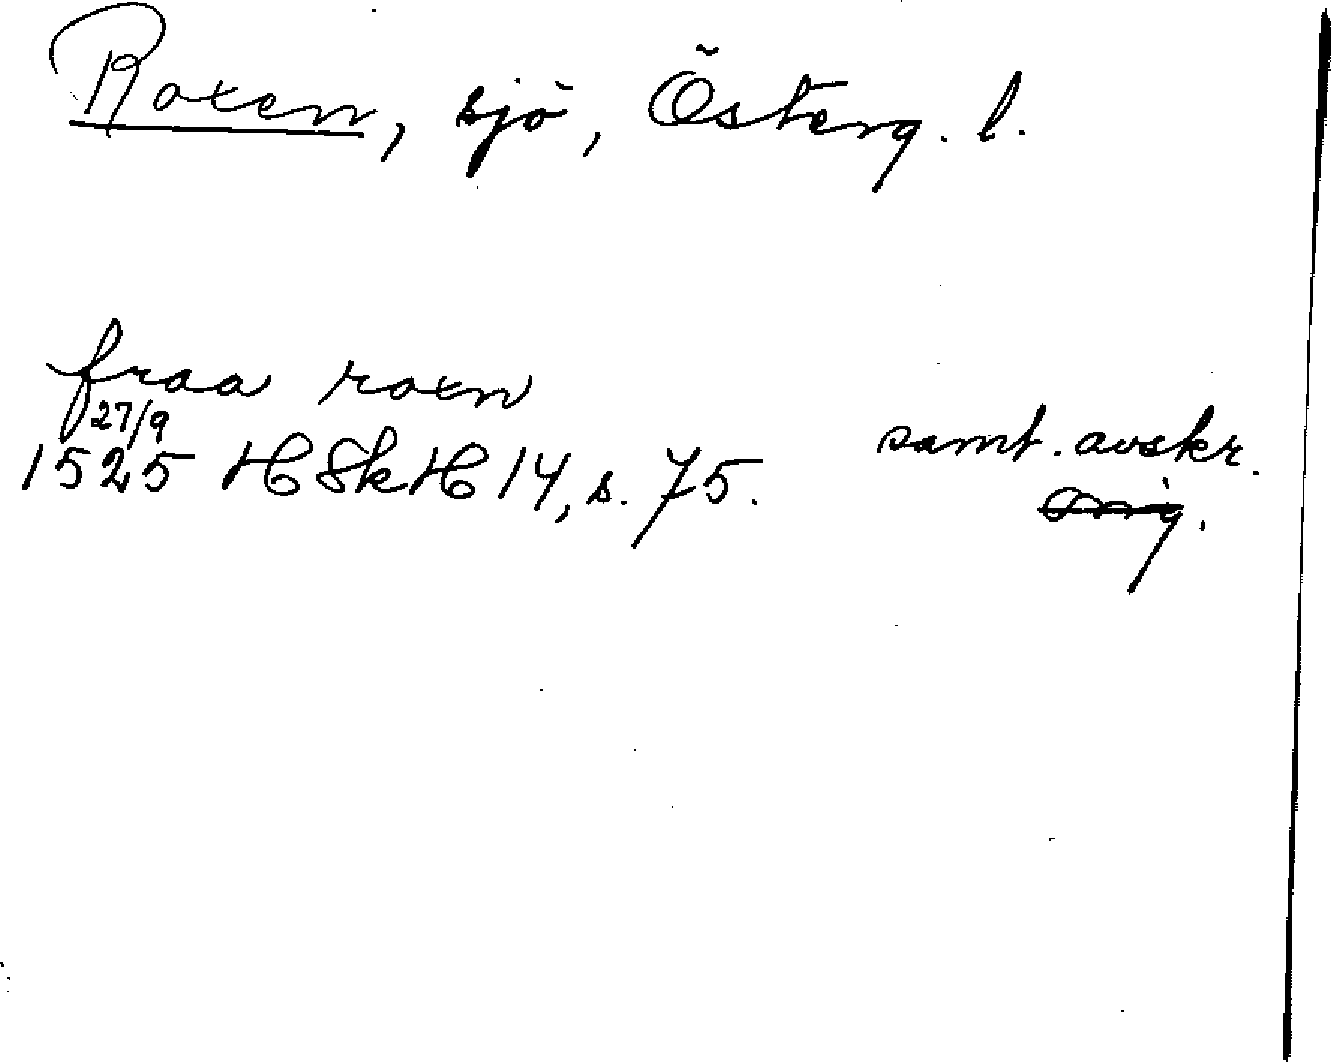 Roxen, sjö, Österg. l.
fraa roxn
27/9
1525 HSkH 14, s. 75.
samt. avskr.
orig.